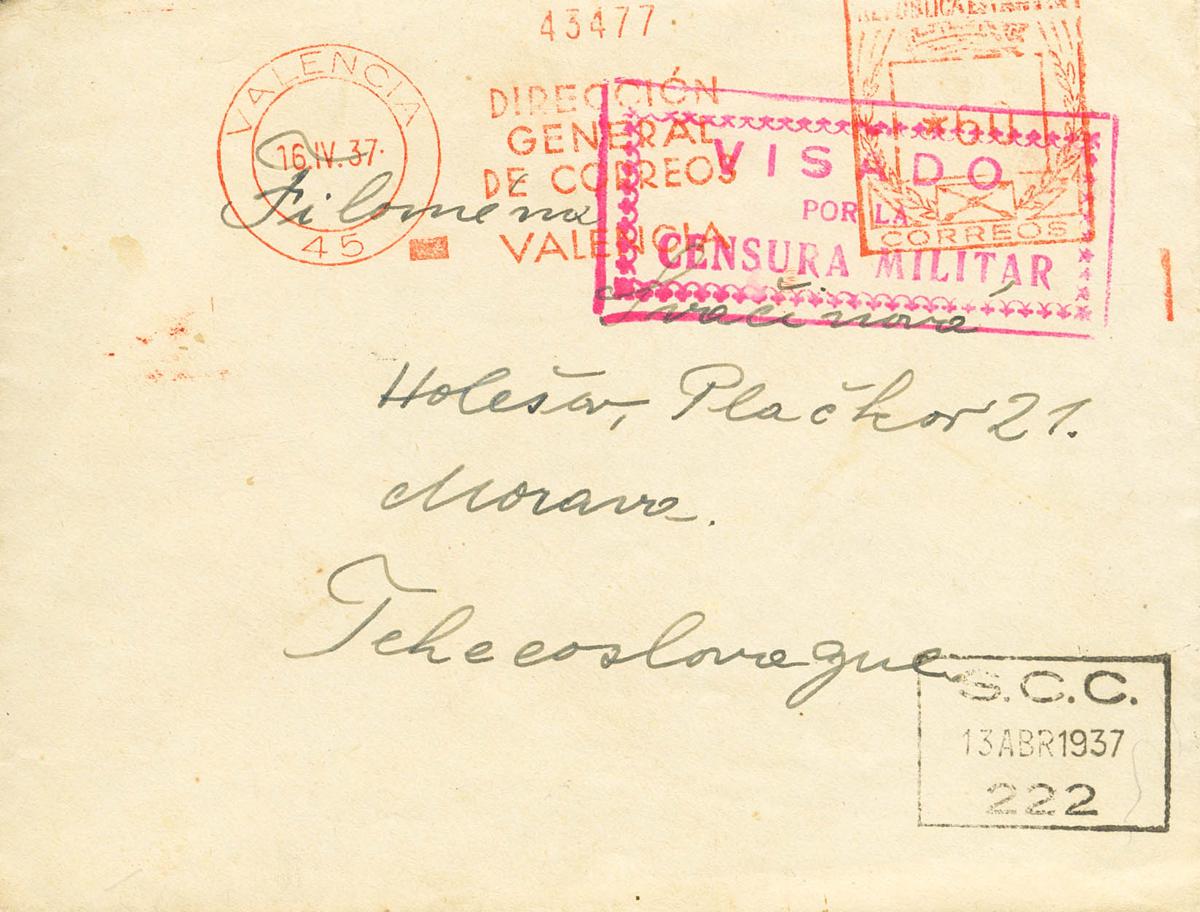 43477
REPUBLICA ESPAÑOLA
VALENCIA
16.IV.37.
45
DIRECCIÓN
GENERAL
DE CORREOS
VALENCIA
*60
CORREOS
VISADO
POR LA
CENSURA MILITAR
Filoména
Svačinová
Holešov, Plačkov 21.
Morava.
Tchecoslovaque
S.C.C.
13 ABR 1937
222